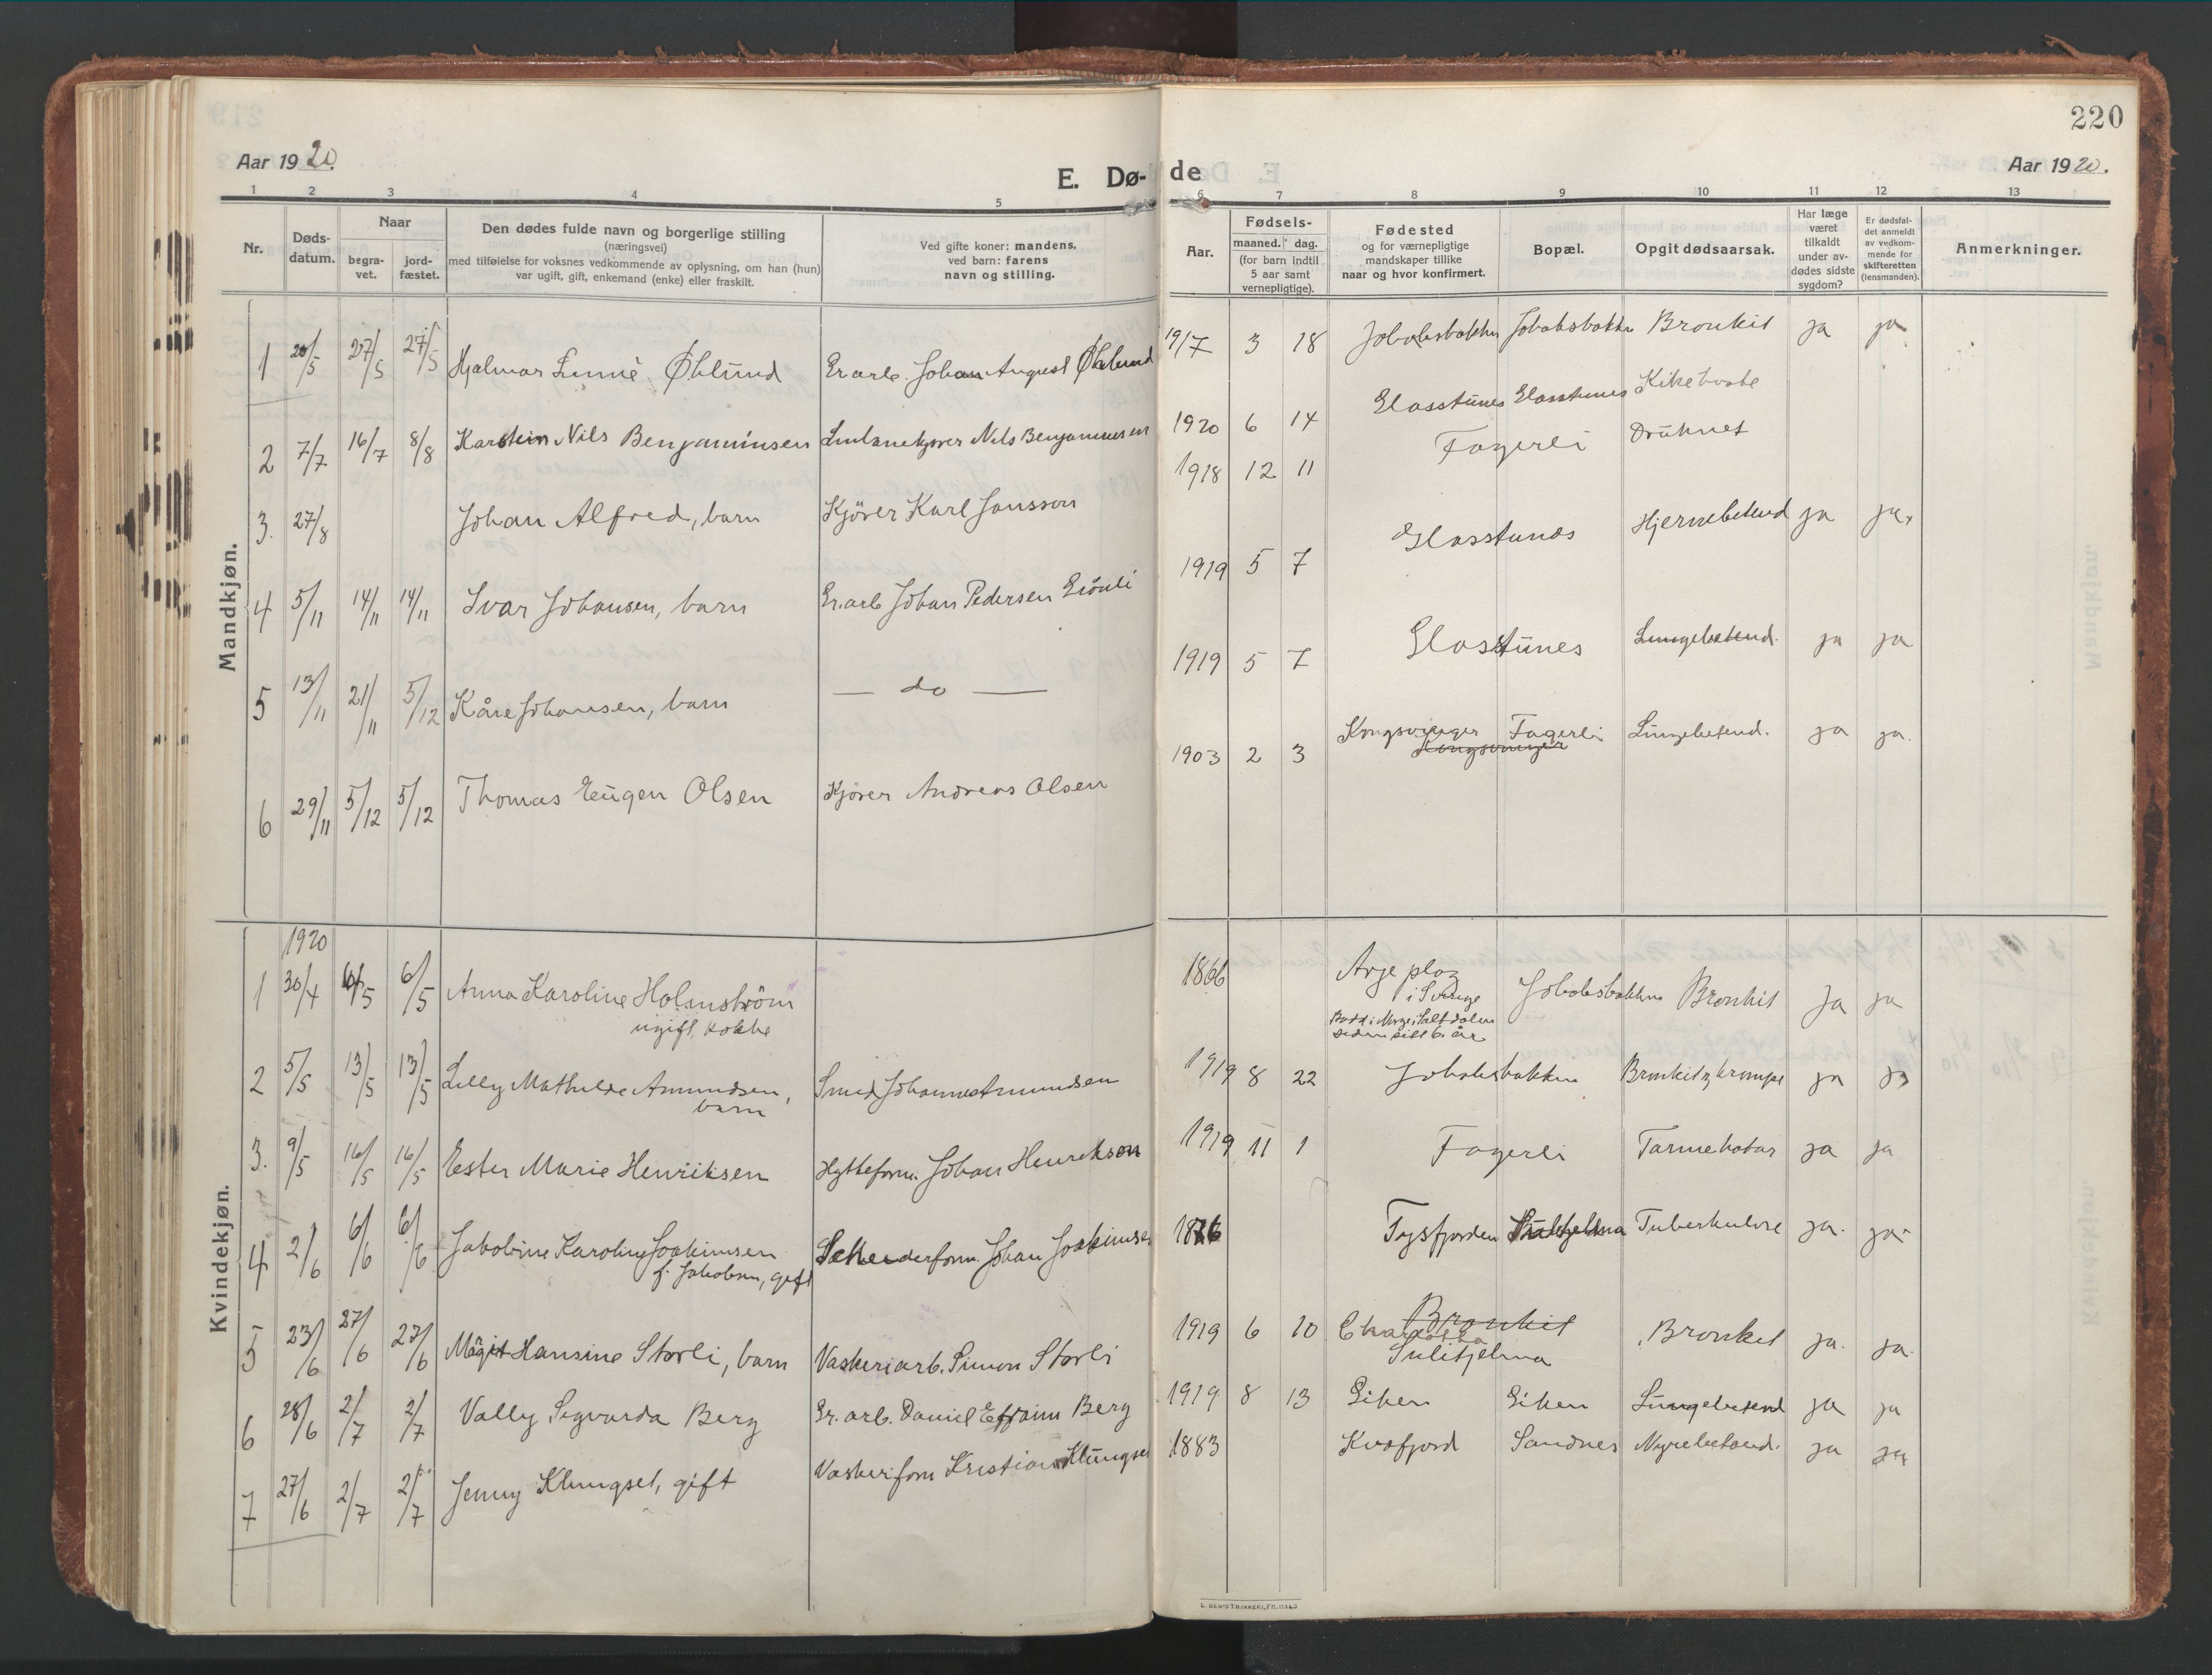 220
Aar 1920.
E. Dø-de
Aar 1920.
1 2 3 4 5 6 7 8 9 10 11 12 13
Nr.
Døds-
datum.
Naar
begra-
vet.
jord-
fæstet.
Den dødes fulde navn og borgerlige stilling
(næringsvei)
med tilføielse for voksnes vedkommende av oplysning, om han (hun)
var ugift, gift, enkemand (enke) eller fraskilt.
Ved gifte koner: mandens,
ved barn: farens
navn og stilling.
Aar.
Fødsels-
maaned. dag.
(for barn indtil
5 aar samt
vernepligtige).
Fødested
og for værnepligtige
mandskaper tillike
naar og hvor konfirmert.
Bopæl.
Opgit dødsaarsak.
Har læge
været
tilkaldt
under av-
dødes sidste
sygdom?
Er dødsfal-
det anmeldt
av vedkom-
mende for
skifteretten
(lensmanden).
Anmerkninger.
Mandkjøn.
1 20/5 27/5 27/5 Hjalmar Øhlund Er.arb. Johan August Øhlund 1917 3 18 Jakobsbakken Jakobsbakken Bronkit ja ja
2 7/7 16/7 8/8 Karstein Nils Benjaminsen Nils Benjaminsen 1920 6 14 Glasstunes Glasstunes Kikehoste
3. 27/8 Johan Alfred, barn Kjører Karl Jansson 1918 12 11 Fagerli Druknet
4 5/11 14/11 14/11 Ivar Johansen, barn Er.arb Johan Pedersen 1919 5 7 Glasstunes Hjernebetend ja ja.
5 13/11 21/11 5/12 Kåre Johansen, barn — do — 1919 5 7 Glasstunes Lungebetend. ja ja
6 29/11 5/12 5/12 Thomas Eugen Olsen Kjører Andreas Olsen 1903 2 3 Kongsvinger Fagerli Lungebetend. ja ja.
Kongsvinger
Kvindekjøn.
1920
1 30/4 6/5 6/5 Anna Karoline Holmström 1866 Arjeplog Jakobsbakken Bronkit Ja ja
ugift, kokke
i Sverige
Bodd i Norge i Saltdalen
siden sitt 6. år
2 5/5 13/5 13/5 Lilly Mathilde Amundsen, Smed Johannes Amundsen 1919 8 22 Jakobsbakken Bronkit og krampe ja ja
barn
3. 9/5 16/5 16/5 Ester Marie Henriksen Hytteform. Johan Henrikson 1919 11 1 Fagerli Tarmekatar ja ja
4 2/6 6/6 6/6 Jakobine Karoline Joakimsen Johan Joakimsen 1876 Tysfjorden Sulitjelma Tuberkulose ja. ja.
f. Jakobsen, gift
5 23/6 27/6 27/6 Mägit Hansine Storli, barn Vaskeriarb. Simon Storli 1919 6 10 Charlotta Bronkit ja. ja.
Bronkit
Sulitjelma
6 28/6 2/7 2/7 Vally Sigvarda Berg Gr. arb. Daniel Efraim Berg 1919 8 13 Giken Giken Lungebetend ja ja
7 27/6 2/7 2/7 Jenny Klungset, gift Vaskeriform Kristian Klungset 1883 Kvæfjord Sandnes Nyrebetænd. ja ja